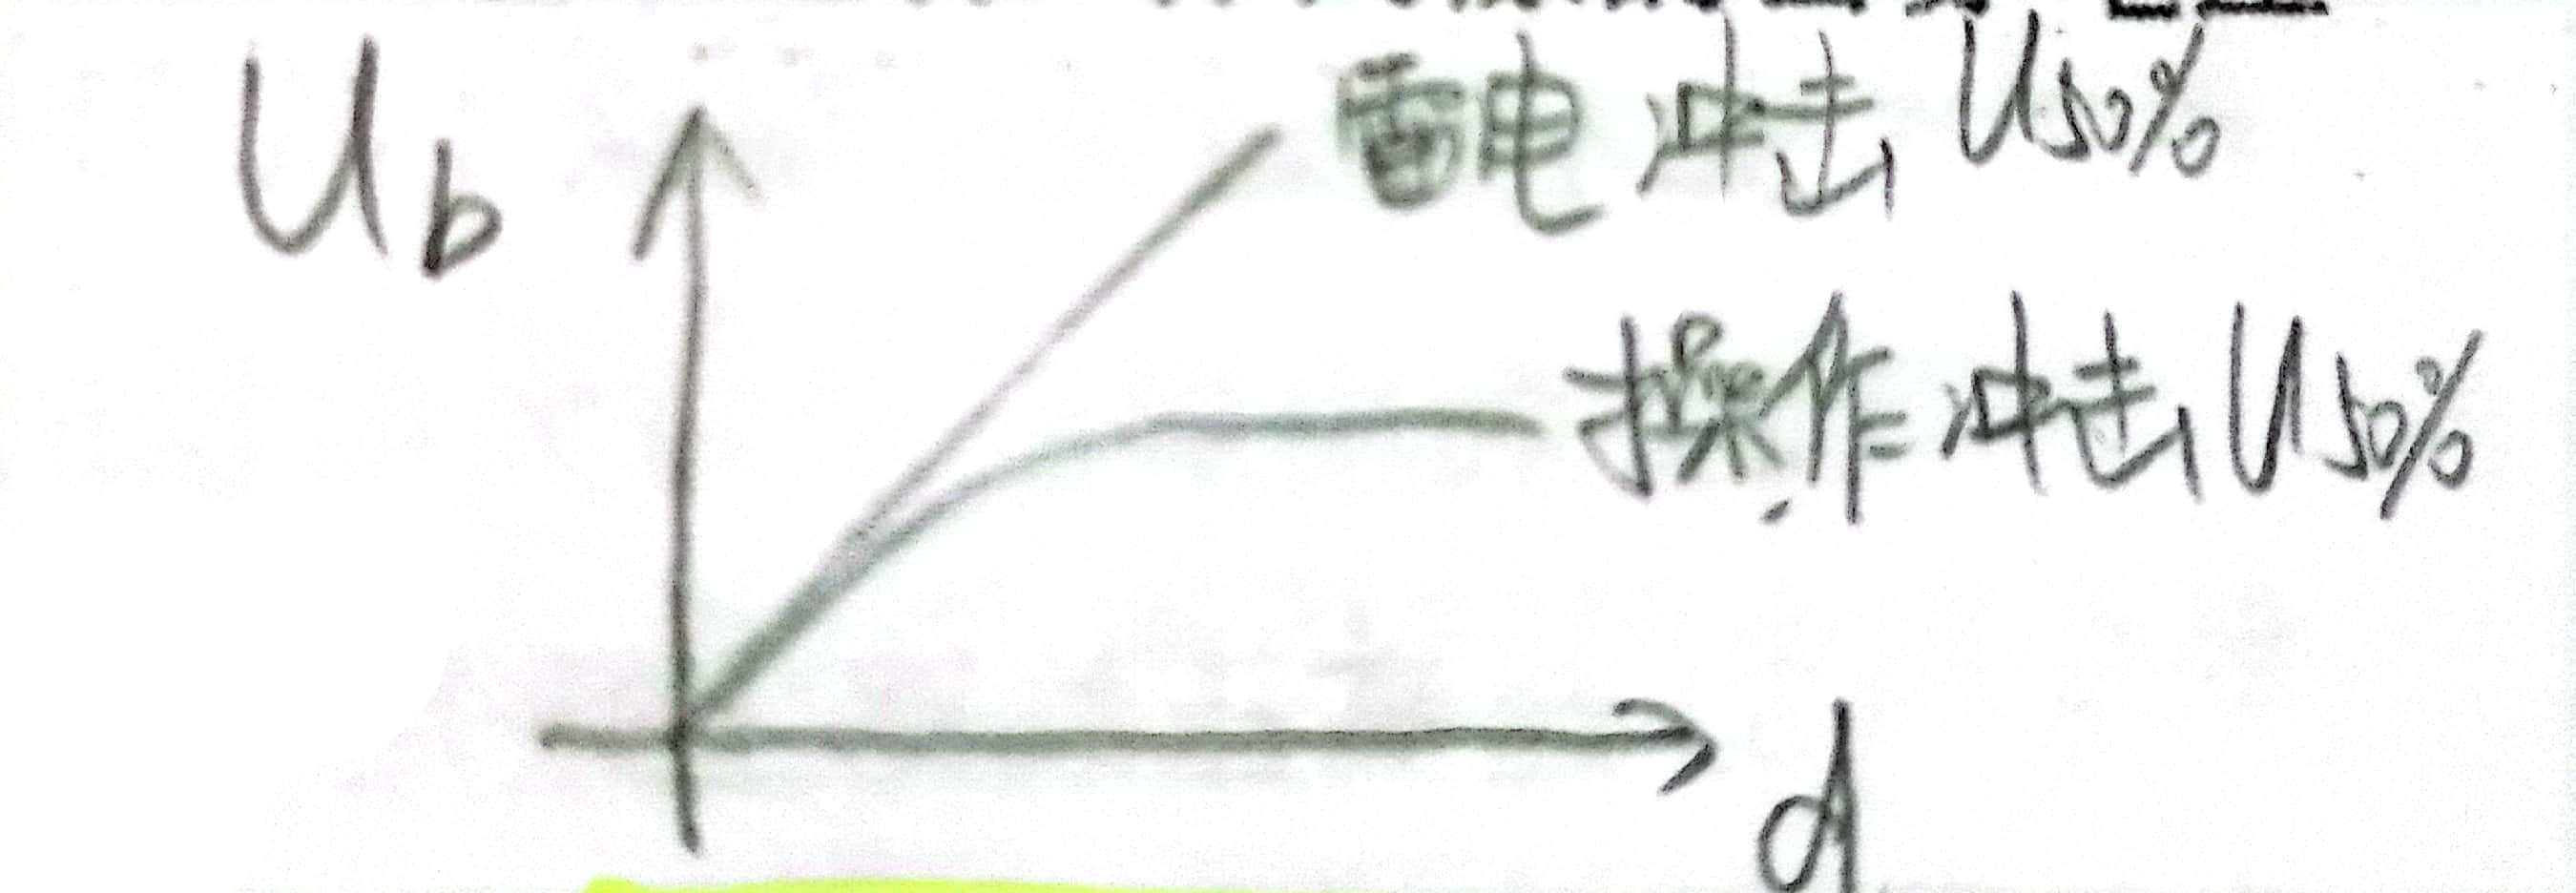 Ub
雷电冲击U50%
操作冲击U50%
d